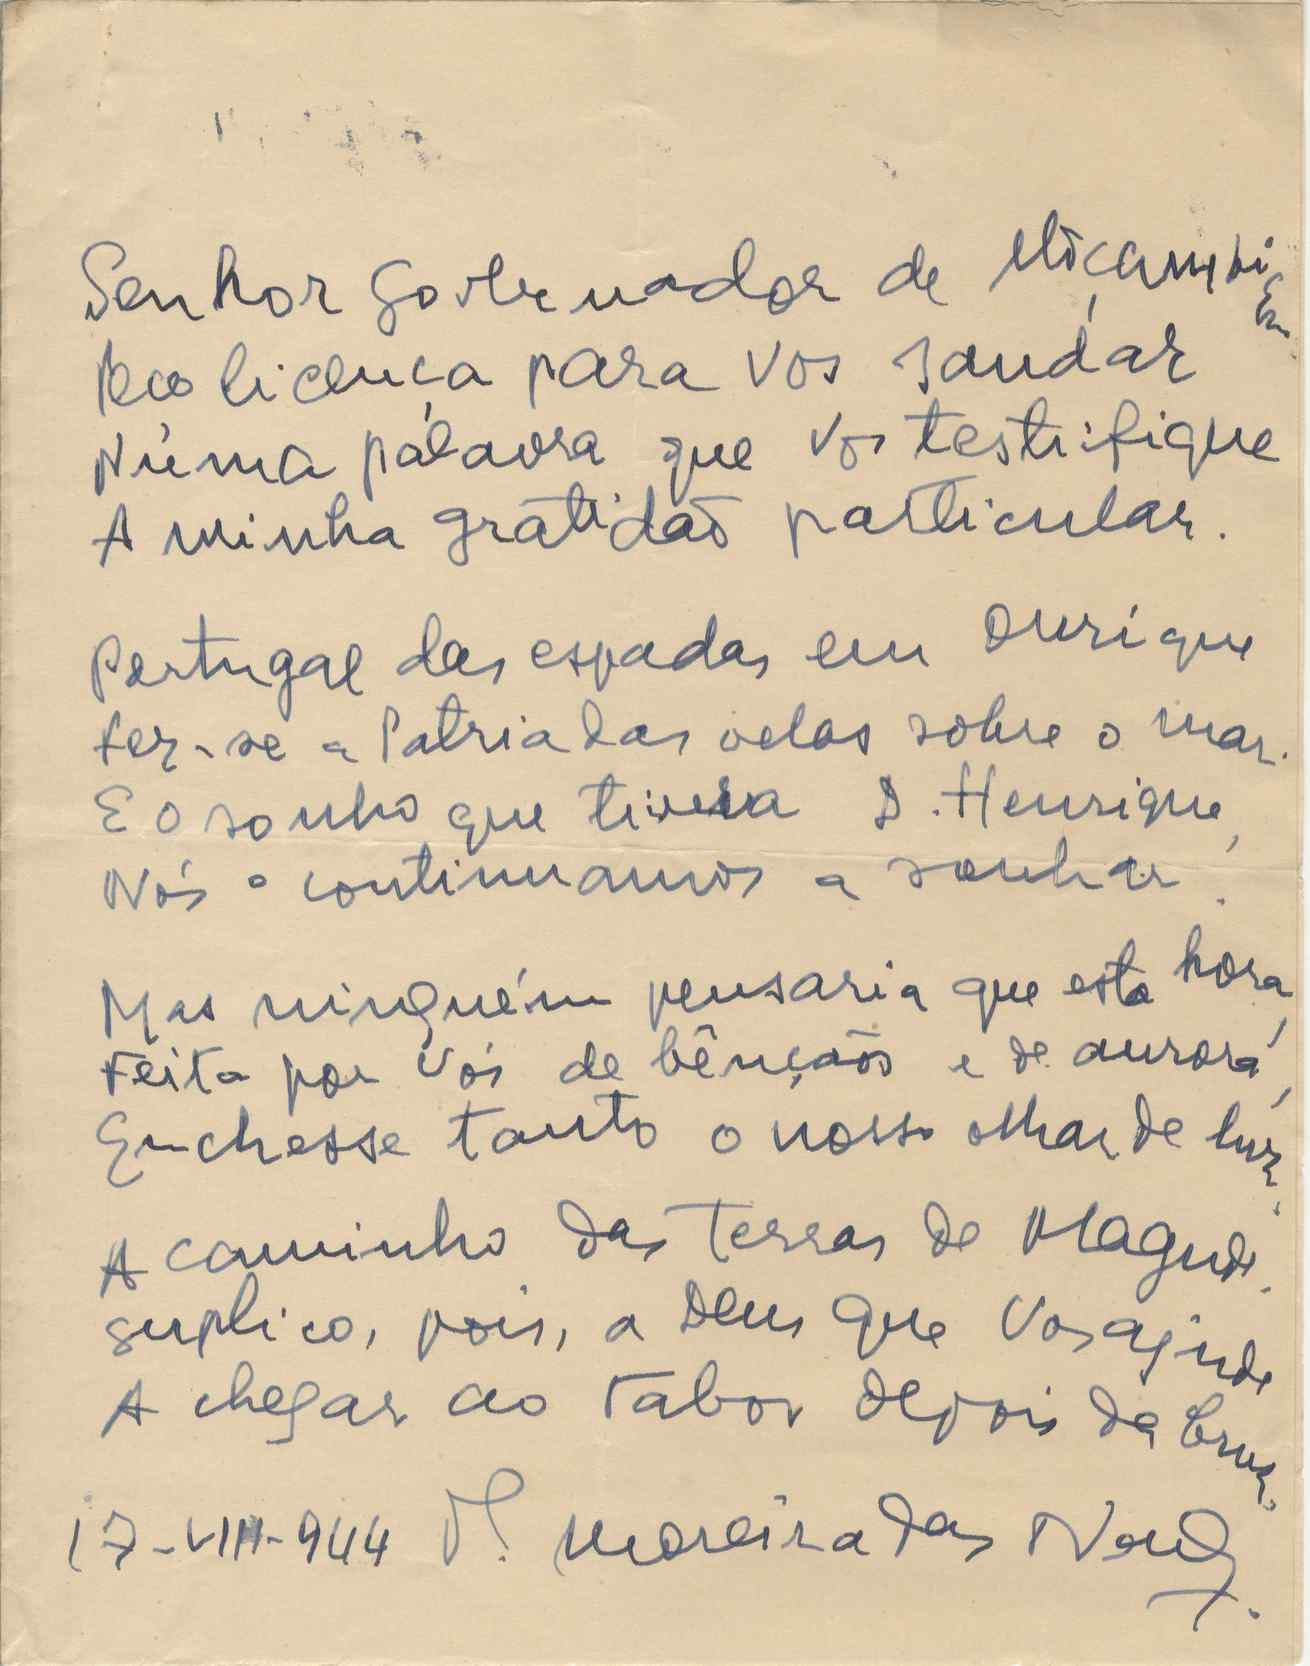 Senhor Governador de Moçambique
Peço licença para vos saudar
Núma palavra que vos testifique
A minha gratidão particular.
Portugal das espadas em Ourique
Fez-se a Patria das velas sobre o mar.
E o sonho que tivera D. Henrique,
Nós o continuamos a sonhar.
Mas ninguém pensaria que esta hora,
Feita por Vós de bênçãos e de aurora,
Enchesse tanto o nosso olhar de luz.
A caminho das terras de Magude.
suplico, pois, a Deus que Vos ajude
A chegar ao Tabor depois da Cruz.
17-VIII-944 M. Moreira das Neves.